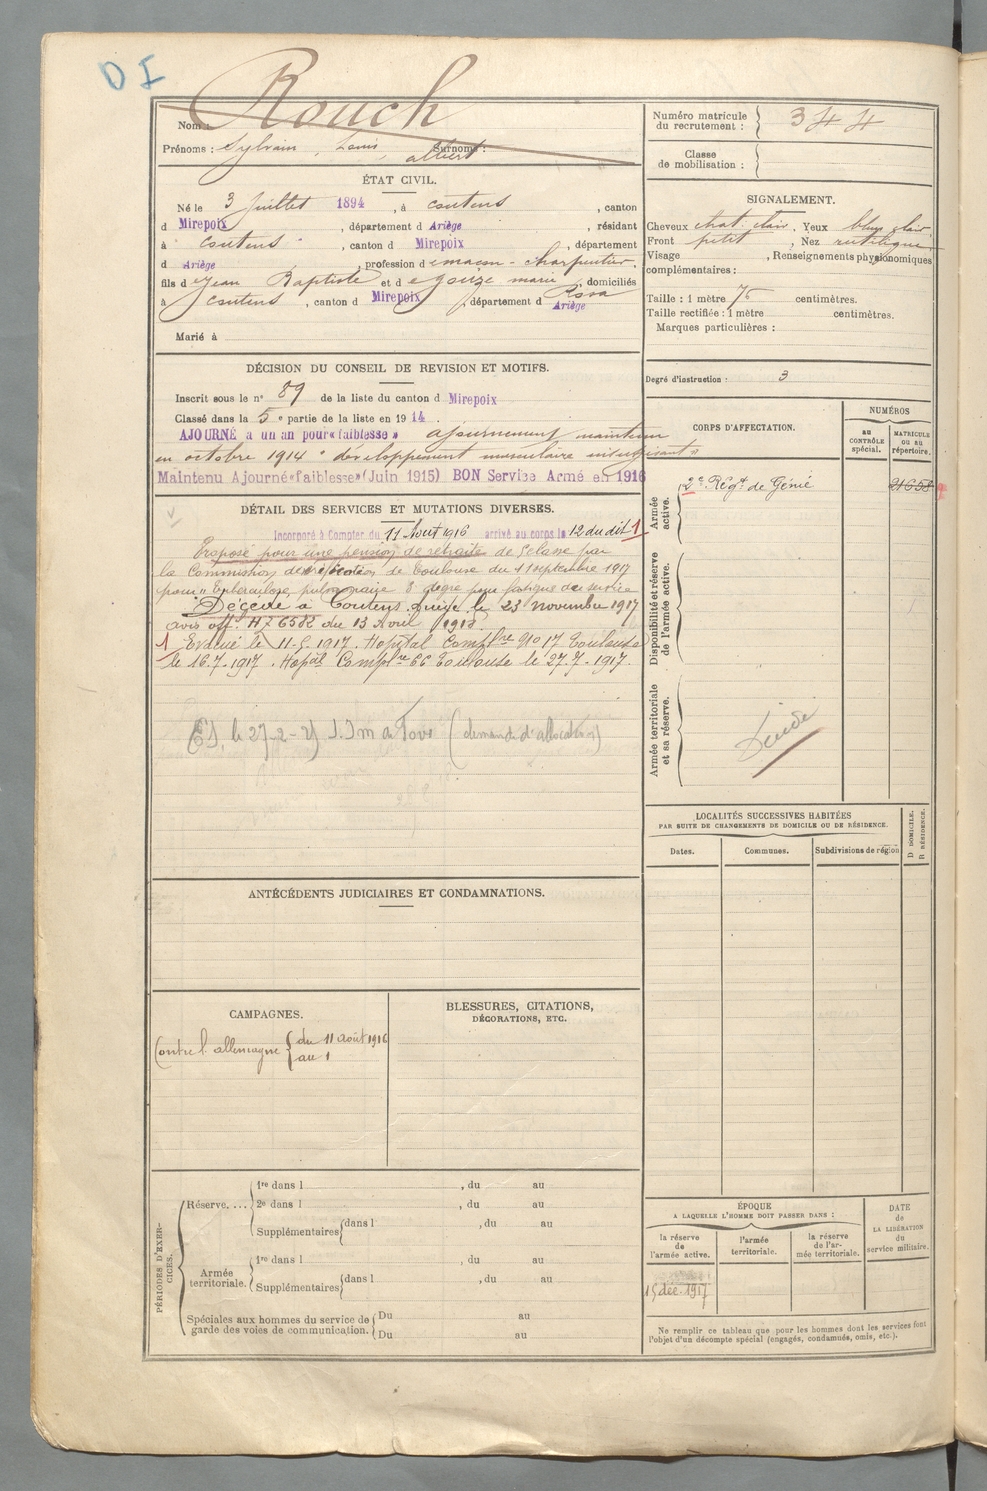 DI
Nom : Rouch
Prénoms : Sylvain, Louis, albert Surnoms :
ÉTAT CIVIL.
Né le 3 Juillet 1894, à coutens, canton
d Mirepoix, département d Ariège, résidant
à coutens, canton d Mirepoix, département
d Ariège, profession d emaçon - charpentier,
fils d e Jean Baptiste et d e gouze marie Rosa, domiciliés
à coutens, canton d Mirepoix, département d Ariège
Marié à
DÉCISION DU CONSEIL DE REVISION ET MOTIFS.
Inscrit sous le n° 89 de la liste du canton d Mirepoix
Classé dans la 5 e partie de la liste en 1914.
AJOURNÉ à un an pour «faiblesse» ajournement maintenu
en octobre 1914 "développement musculaire insuffisant"
Maintenu Ajourné «faiblesse» (Juin 1915) BON Service Armé en 1916
DÉTAIL DES SERVICES ET MUTATIONS DIVERSES.
Incorporé à Compter du 11 Aout 1916 arrivé au corps le 12 du dit 1
Proposé pour une pension de retraite de classe par
la Commission de de Toulouse du 11 septembre 1917
pour "Tuberculose pulmonaire degré pour fatigue de service
Décédé à Coutens Ariège le 23 novembre 1917
avis off. H 7 6582 du 13 Avril 1918
1 Evacué le 11-5-1917. Hopital Compl.re N° 17 Toulouse
le 16.7.1917. Hopal Compl.re 66 Toulouse le 27.7.1917.
le 27-2- (demande d'allocation)
ANTÉCÉDENTS JUDICIAIRES ET CONDAMNATIONS.
CAMPAGNES.
Contre l'allemagne { du 11 août 1916
au 1
BLESSURES, CITATIONS,
DÉCORATIONS, ETC.
PÉRIODES D'EXERCICES.
Réserve. ... 1re dans l , du au
2e dans l , du au
Supplémentaires dans l , du au
Armée territoriale. 1re dans l , du au
Supplémentaires dans l , du au
Spéciales aux hommes du service de garde des voies de communication. Du au
Du au
Numéro matricule
du recrutement : 344
Classe
de mobilisation :
SIGNALEMENT.
Cheveux chat. clair. Yeux bleus clair.
Front petit, Nez rectiligne
Visage , Renseignements physionomiques
complémentaires :
Taille : 1 mètre 75 centimètres.
Taille rectifiée : 1 mètre centimètres.
Marques particulières :
Degré d'instruction : 3
CORPS D'AFFECTATION.
NUMÉROS
au CONTRÔLE spécial.
MATRICULE ou au répertoire.
Armée active.
2e Régt de Génie 21658
Disponibilité et réserve de l'armée active.
Armée territoriale et sa réserve.
LOCALITÉS SUCCESSIVES HABITÉES
PAR SUITE DE CHANGEMENTS DE DOMICILE OU DE RÉSIDENCE.
Dates.
Communes.
Subdivisions de région
D DOMICILE.
R RÉSIDENCE.
ÉPOQUE
A LAQUELLE L'HOMME DOIT PASSER DANS :
la réserve de l'armée active.
l'armée territoriale.
la réserve de l'armée territoriale.
DATE de LA LIBÉRATION du service militaire.
15 déc. 1917
Ne remplir ce tableau que pour les hommes dont les services font
l'objet d'un décompte spécial (engagés, condamnés, omis, etc.).